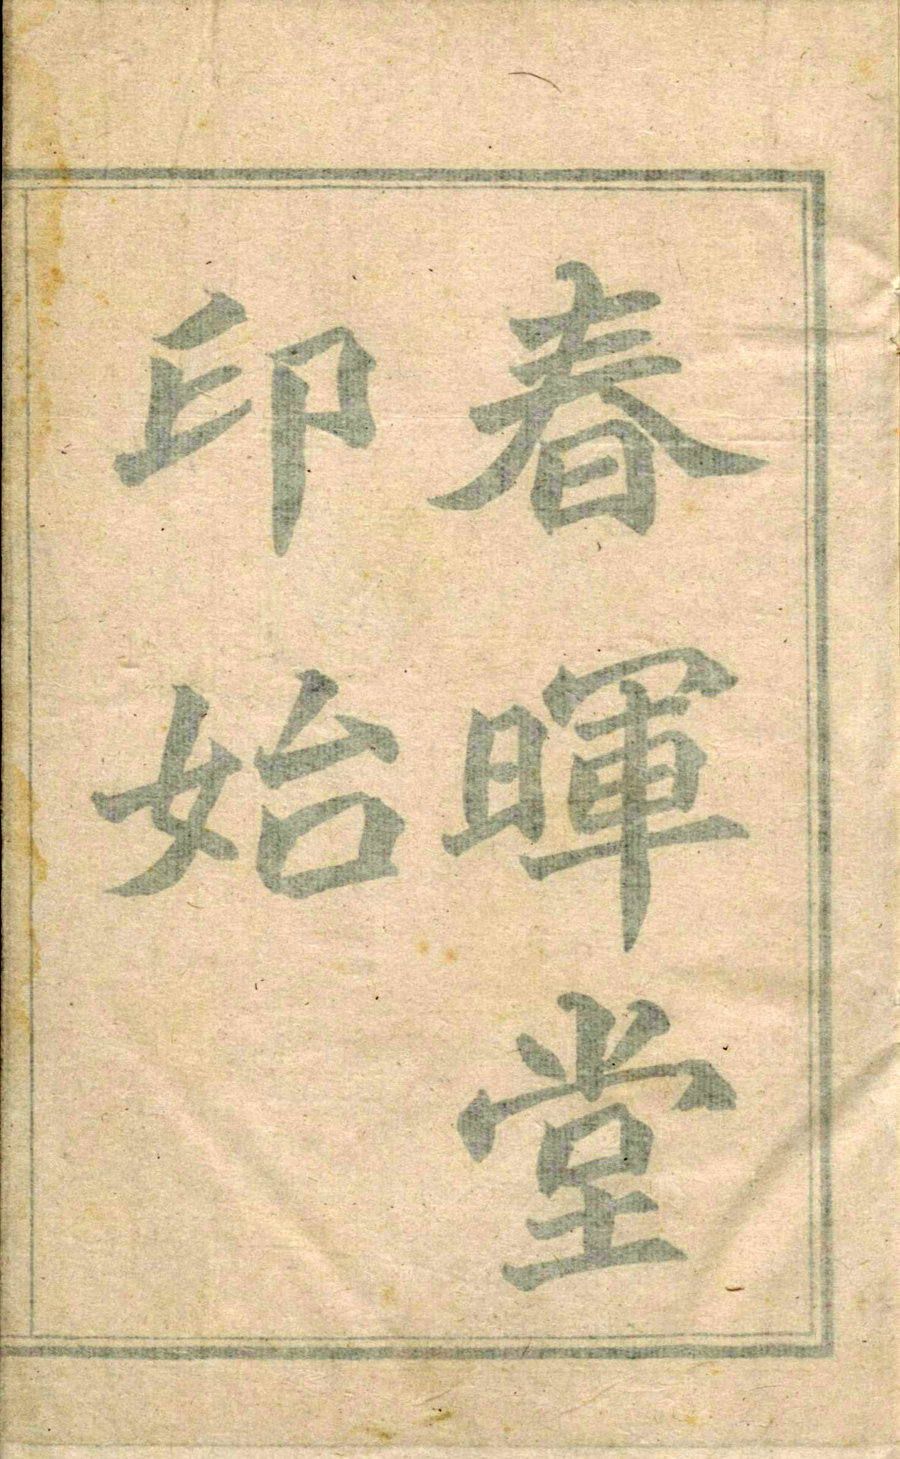 春暉堂
印始